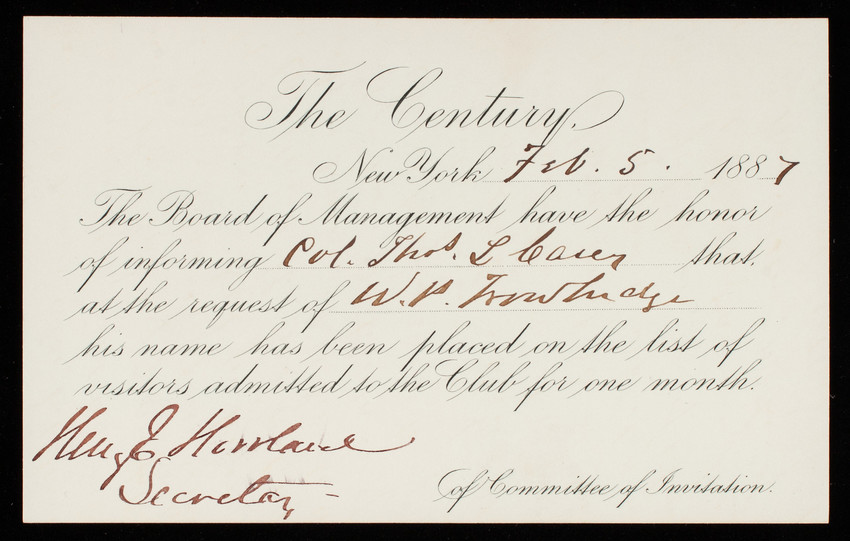 The Century.
New York Feb. 5. 1887
The Board of Management have the honor
of informing Col. Thos. L Casey that,
at the request of W. P. Trowbridge
his name has been placed on the list of
visitors admitted to the Club for one month.
Heny E Howland
Secretary
of Committee of Invitation.